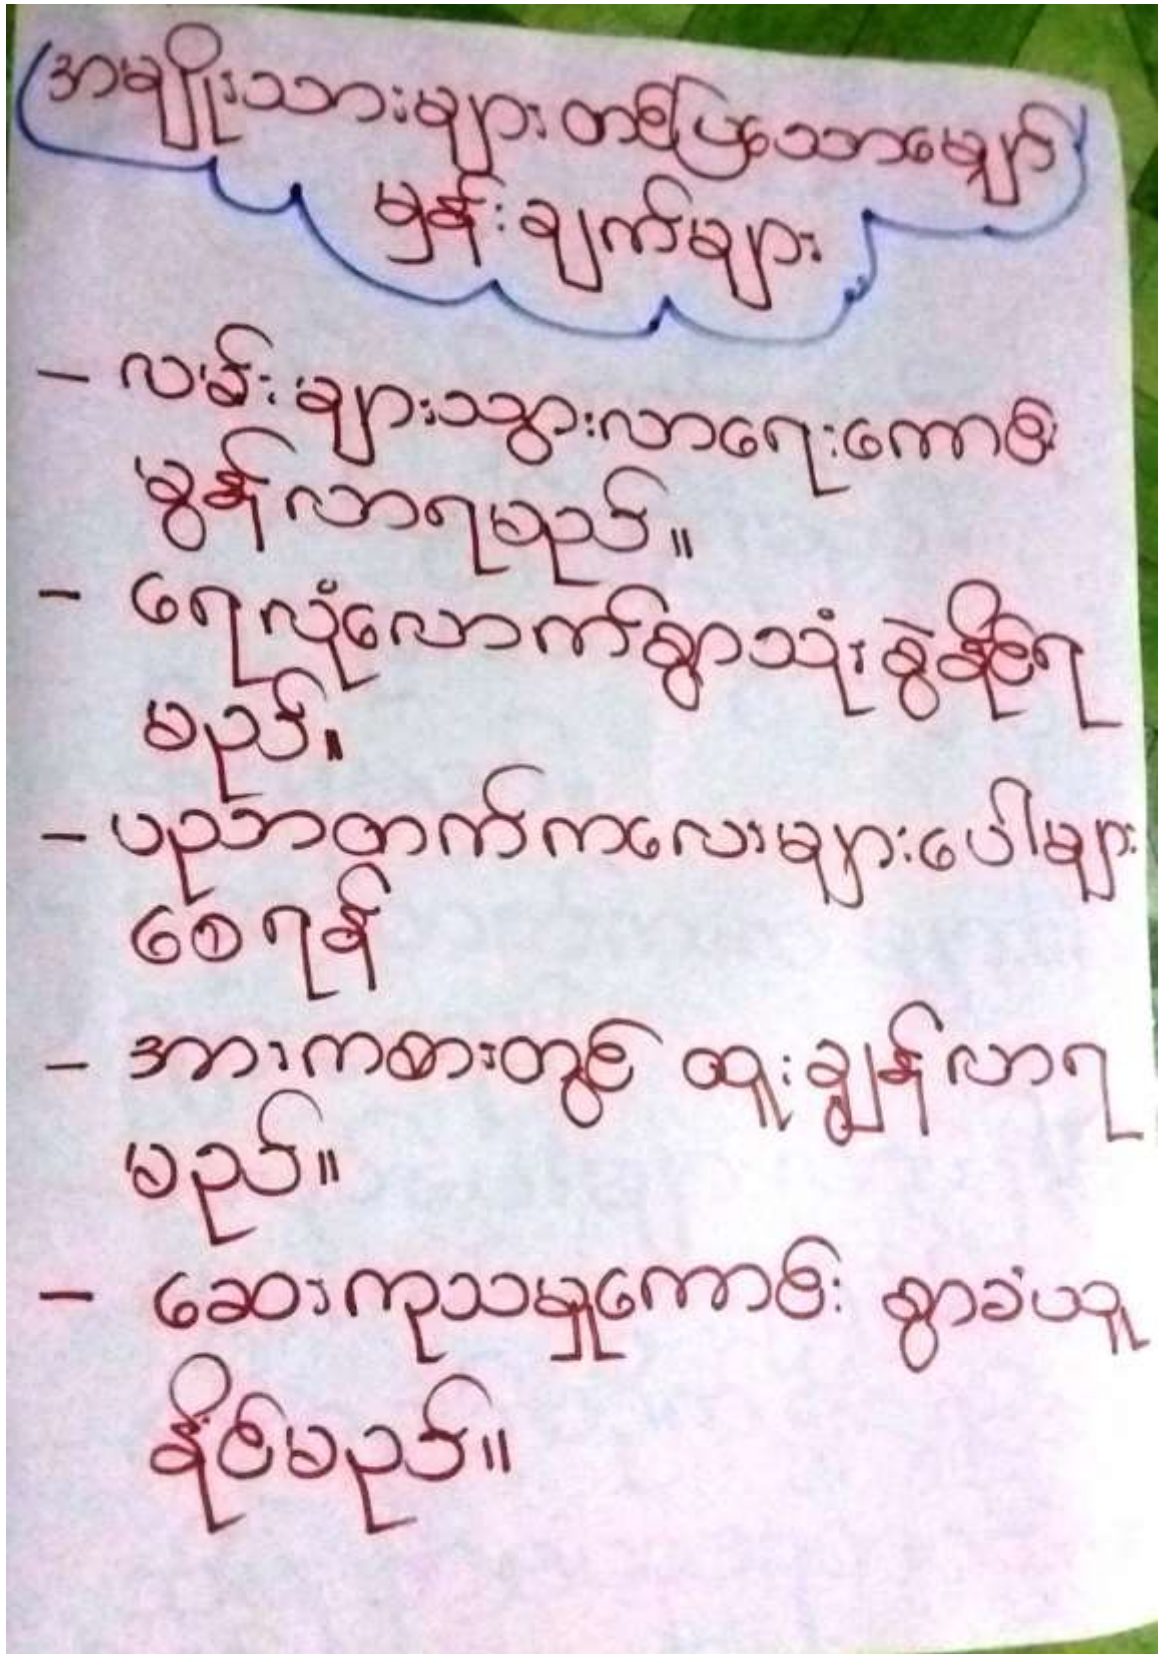 အမျိုးသားများ တင်ပြသောမျှော်
မှန်းချက်များ
- လမ်းများသွားလာရေးကောင်း
မွန်လာရမည်။
- ရေလုံလောက်စွာသုံးစွဲနိုင်ရ
မည်။
- ပညာတတ်ကလေးများပေါများ
စေရန်
- အားကစားတွင် ထူးချွန်လာရ
မည်။
- ဆေးကုသမှုကောင်း စွာခံယူ
နိုင်မည်။